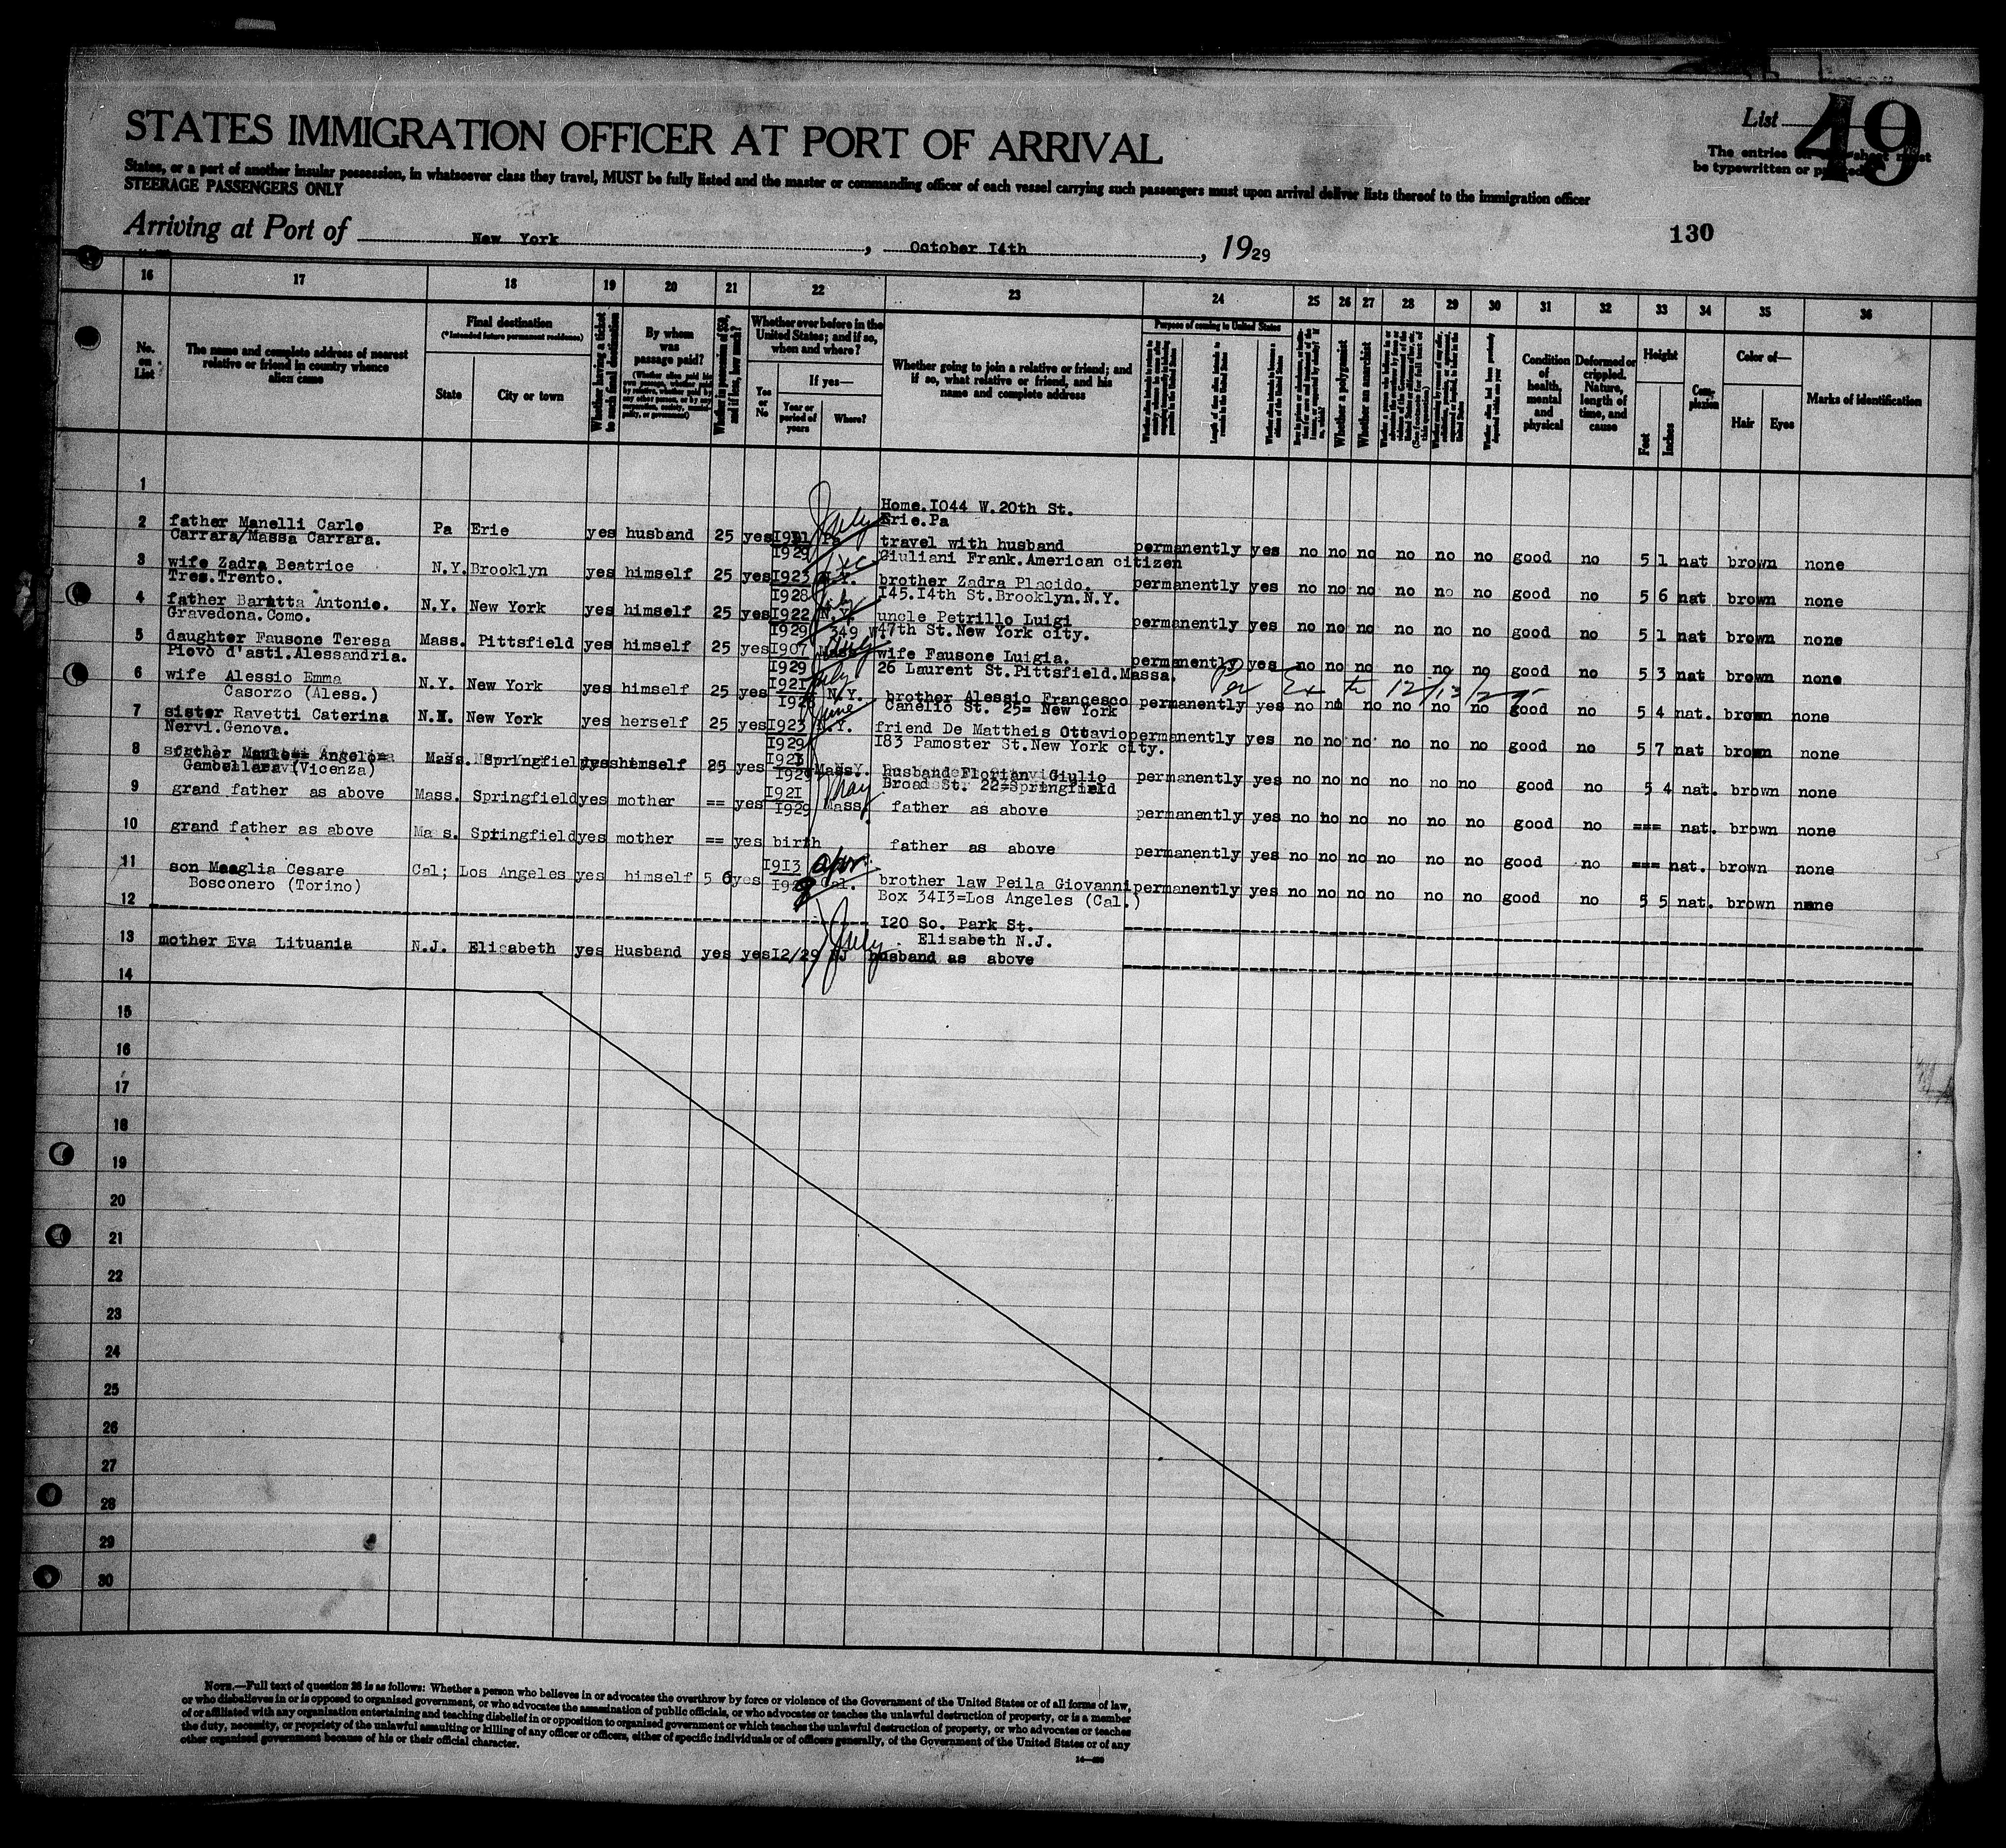 49
List
The entries on this sheet must
be typewritten or printed
STATES IMMIGRATION OFFICER AT PORT OF ARRIVAL
States, or a part of another insular possession, in whatsoever class they travel, MUST be fully listed and the master or commanding officer of each vessel carrying such passengers must upon arrival deliver lists thereof to the immigration officer
STEERAGE PASSENGERS ONLY
130
Arriving at Port of New York, October I4th, 1929
16 17 18 19 20 21 22 23 24 25 26 27 28 29 30 31 32 33 34 35 36
No. on List
The name and complete address of nearest relative or friend in country whence alien came
Final destination
(*Intended future permanent residence)
State
City or town
Whether having a ticket to such final destination
By whom was passage paid?
Whether in possession of $50, and if less, how much?
Whether ever before in the United States; and if so, when and where?
Yes or No
If yes—
Year or period of years
Where?
Whether going to join a relative or friend; and if so, what relative or friend, and his name and complete address
Purpose of coming to United States
Length of time alien intends to remain in the United States
Whether a polygamist
Whether an anarchist
Condition of health, mental and physical
Deformed or crippled. Nature, length of time, and cause
Height
Feet
Inches
Complexion
Color of—
Hair
Eyes
Marks of identification
1
Home.I044 W.20th St.
Erie.Pa
2 father Manelli Carle Pa Erie yes husband 25 yes Pa July travel with husband permanently yes no no no no no no good no 5 1 nat brown none
Carrara/Massa Carrara. I929 Giuliani Frank.American citizen
3 wife Zadra Beatrice N.Y. Brooklyn yes himself 25 yes I923 N.Y. brother Zadra Placido. permanently yes no no no no no no good no 5 6 nat brown none
Tres.Trento. I928 I45.I4th St.Brooklyn.N.Y.
4 father Antonio. N.Y. New York yes himself 25 yes I922 N.Y. uncle Petrillo Luigi permanently yes no no no no no no good no 5 1 nat brown none
Gravedona.Como. I929 349 W47th St.New York city.
5 daughter Fausone Teresa Mass. Pittsfield yes himself 25 yes I907 Mass wife Fausone Luigia. permanently yes no no no no no no good no 5 3 nat brown none
Piovò d'asti.Alessandria. I929 26 Laurent St.Pittsfield.Massa.
6 wife Alessio Emma N.Y. New York yes himself 25 yes I921 July N.Y. brother Alessio Francesco permanently yes no no no no no no good no 5 4 nat. brown none
Casorzo (Aless.) Canello St. 25= New York
7 sister Ravetti Caterina New York yes herself 25 yes I923 June N.Y. friend De Mattheis Ottavio permanently yes no no no no no no good no 5 7 nat brown none
Nervi.Genova. I929 I83 Pamoster St.New York city.
8 Mass. Springfield 25 yes Mass. husband Florian Giulio permanently yes no no no no no no good no 5 4 nat. brown none
Gambellara (Vicenza) I929 Broad St. 22=Springfield
9 grand father as above Mass. Springfield yes mother == yes I921 May Mass. father as above permanently yes no no no no no no good no === nat. brown none
I929
10 grand father as above Ma s. Springfield yes mother == yes birth father as above permanently yes no no no no no no good no === nat. brown none
11 son Cesare Cal; Los Angeles yes himself 5 6 yes I913 Apr. Cal. brother law Peila Giovanni permanently yes no no no no no no good no 5 5 nat. brown none
Bosconero (Torino) Box 34I3=Los Angeles (Cal.)
12 I20 So. Park St.
Elisabeth N.J.
13 mother Eva Lituania N.J. Elisabeth yes Husband yes yes I2/29 NJ July husband as above
14
15
16
17
18
19
20
21
22
23
24
25
26
27
28
29
30
NOTE.—Full text of question 28 is as follows: Whether a person who believes in or advocates the overthrow by force or violence of the Government of the United States or of all forms of law,
or who disbelieves in or is opposed to organised government, or who advocates the assassination of public officials, or who advocates or teaches the unlawful destruction of property, or is a member
of or affiliated with any organisation entertaining and teaching disbelief in or opposition to organised government or which teaches the unlawful destruction of property, or who advocates or teaches
the duty, necessity, or propriety of the unlawful assaulting or killing of any officer or officers, either of specific individuals or of officers generally, of the Government of the United States or of any
other organised government because of his or their official character.